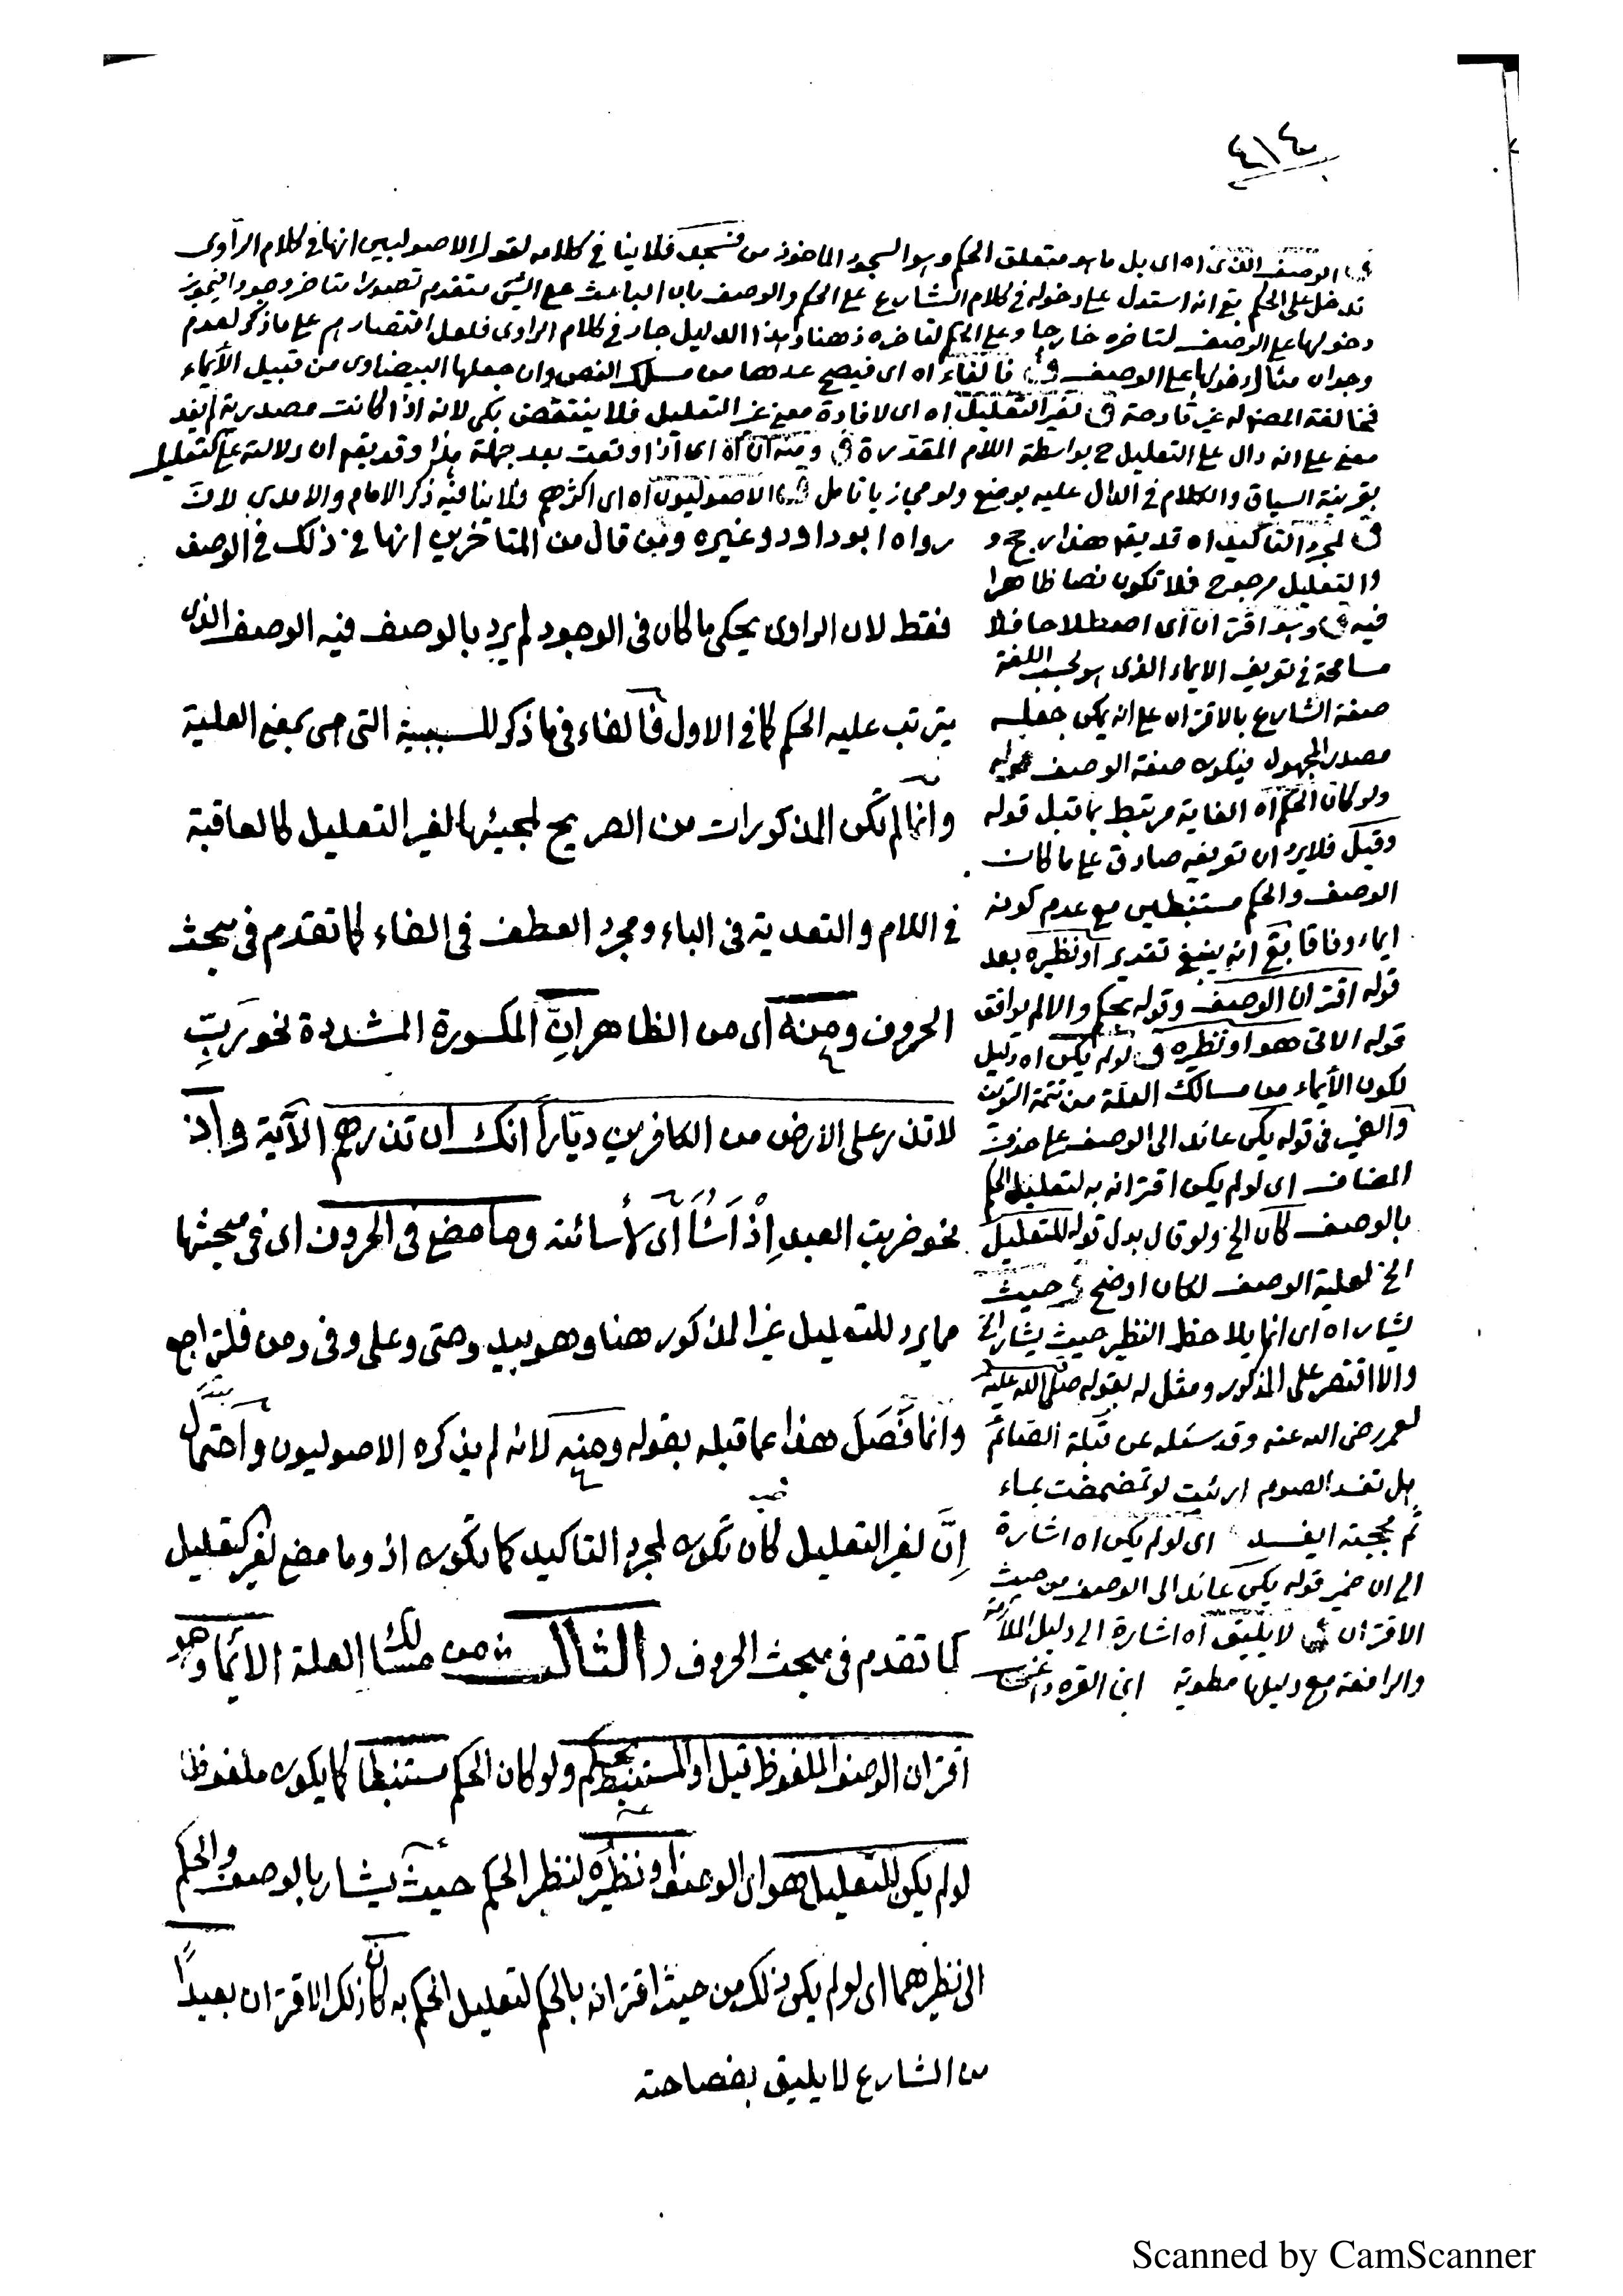 ٤١٤
الوصف الذى اه اى بل ما هو متعلق الحكم وهو السجود الماخوذ من فسجد فلا ينافى كلامه لقول الاصوليين انها فى كلام الراوى
تدخل على الحكم بقى انه استدل على دخوله فى كلام الشارع على الحكم والوصف بان الباعث على الشئ متقدم تصورا متاخر وجودا فيجوز
دخولها على الوصف لتاخره خارجا وعلى الحكم لتاخره ذهنا وهذا الدليل جار فى كلام الراوى فلعل اقتصارهم على ما ذكر لعدم
وجدان مثال دخولها على الوصف فالفاء اه اى فيصح عدها من مسلك النص وان جعلها البيضاوى من قبيل الأيماء
فمخالفة المصنف له غير قادحة لغير التعليل اه اى لافادة معنى غير التعليل فلا ينتقض بكى لانه اذا كانت مصدرية لم يفد
معنى على انه دال على التعليل ح بواسطة اللام المقدرة ومنه ان اه اى اذا وقعت بعد جملة هذا وقد يقم ان دلالته على التعليل
بقرينة السياق والكلام فى الدال عليه بوضع ولو مجازيا تامل الاصوليون اه اى اكثرهم فلا ينافيه ذكر الامام والامدى لان
لمجرد التاكيد اه قد يقم هذا رجح و
والتعليل مرجوح فلا تكون نصا ظاهرا
فيه وهو اقتران اى اصطلاحا فلا
مسامحة فى تعريف الايماء الذى هو بحسب اللغة
صفة الشارع بالاقتران على انه يمكن جعله
مصدر المجهول فيكون صفة الوصف قوله
ولو كان الحكم اه الغاية مرتبط بما قبل قوله
وقيل فلا يرد ان تعريفه صادق على ما كان
الوصف والحكم مستنبطين مع عدم كونه
ايماء وفاقا بقى انه ينبغى تقدير او نظيره بعد
قوله اقتران الوصف وقوله بحكم والا لم يوافق
قوله الاتى هو او نظيره لو لم يكن اه دليل
لكون الأيماء من مسالك العلة من تتمة التعريف
والضمير فى قوله يكن عائد الى الوصف على حذف
المضاف اى لو لم يكن اقترانه به لتعليل الحكم
بالوصف كان الخ ولو قال بدل قوله للتعليل
الخ لعلية الوصف لكان اوضح حيث
يشار اه اى انما يلاحظ النظير حيث يشار الخ
والا اقتصر على المذكور ومثل له بقوله صلى الله عليه
لعمر رضى الله عنه وقد سئله عن قبلة الصائم
هل تفسد الصوم ارئيت لو تمضمضت بماء
ثم مججته ايفسد اى لو لم يكن اه اشارة
الى ان ضمير قوله يكن عائد الى الوصف من حيث
الاقتران لا يليق اه اشارة الى دليل الملازمة
والرافعة مع دليلها مطوية ابن القره داغى
رواه ابو داود وغيره ومن قال من المتاخرين انها فى ذلك فى الوصف
فقط لان الراوى يحكى ما كان فى الوجود لم يرد بالوصف فيه الوصف الذى
يترتب عليه الحكم كما فى الاول فالفاء فيما ذكر للسببية التى هى بمعنى العلية
وانما لم تكن المذكورات من الصريح لمجيئها لغير التعليل كالعاقبة
فى اللام والتعدية فى الباء ومجرد العطف فى الفاء كما تقدم فى مبحث
الحروف ومنه اى من الظاهر إنّ المكسورة المشددة نحو رَبِّ
لا تذر على الارض من الكافرين ديّاراً انك ان تذرهم الآية واذ
نحو ضربت العبد إِذْ أَسَاءَ اى لأسائته وما مضى فى الحروف اى فى مبحثها
مما يرد للتعليل غير المذكور هنا وهو بيد وحتى وعلى وفى ومن فلتراجع
وانما فَصَلَ هذا عما قبله بقوله ومنه لانه لم يذكره الاصوليون واحتمال
إنَّ لغير التعليل كأن تكون لمجرد التاكيد كما تكون اذ وما مضى لغير التعليل
كما تقدم فى مبحث الحروف الثالث من مسالك العلة الأيماء وهو
اقتران الوصف الملفوظ قيل او المستنبط بحكم ولو كان الحكم مستنبطا كما يكون ملفوظا
لو لم يكن للتعليل هو اى الوصف او نظيره لنظير الحكم حيث يشار بالوصف والحكم
الى نظيرهما اى لو لم يكن ذلك من حيث اقترانه بالحكم لتعليل الحكم به كان ذلك الاقتران بعيداً
من الشارع لا يليق بفصاحته
Scanned by CamScanner